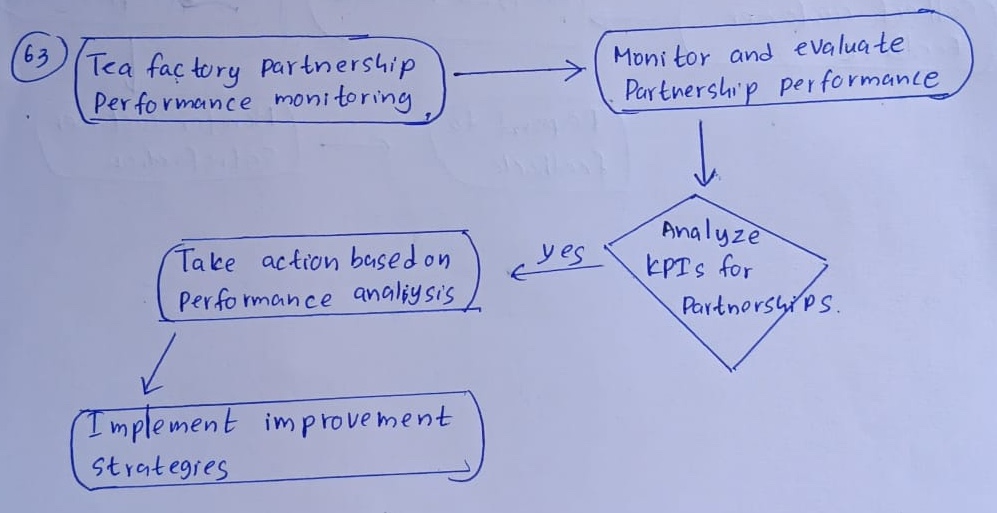 63
Tea factory partnership
Performance monitoring
Monitor and evaluate
Partnership performance
Analyze
KPIs for
Partnerships.
yes
Take action based on
Performance analysis
Implement improvement
Strategies